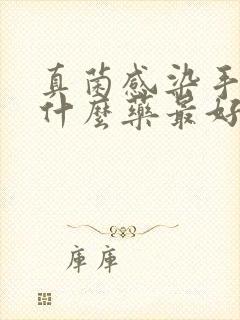 真菌感染手
什麼藥最好
庫庫